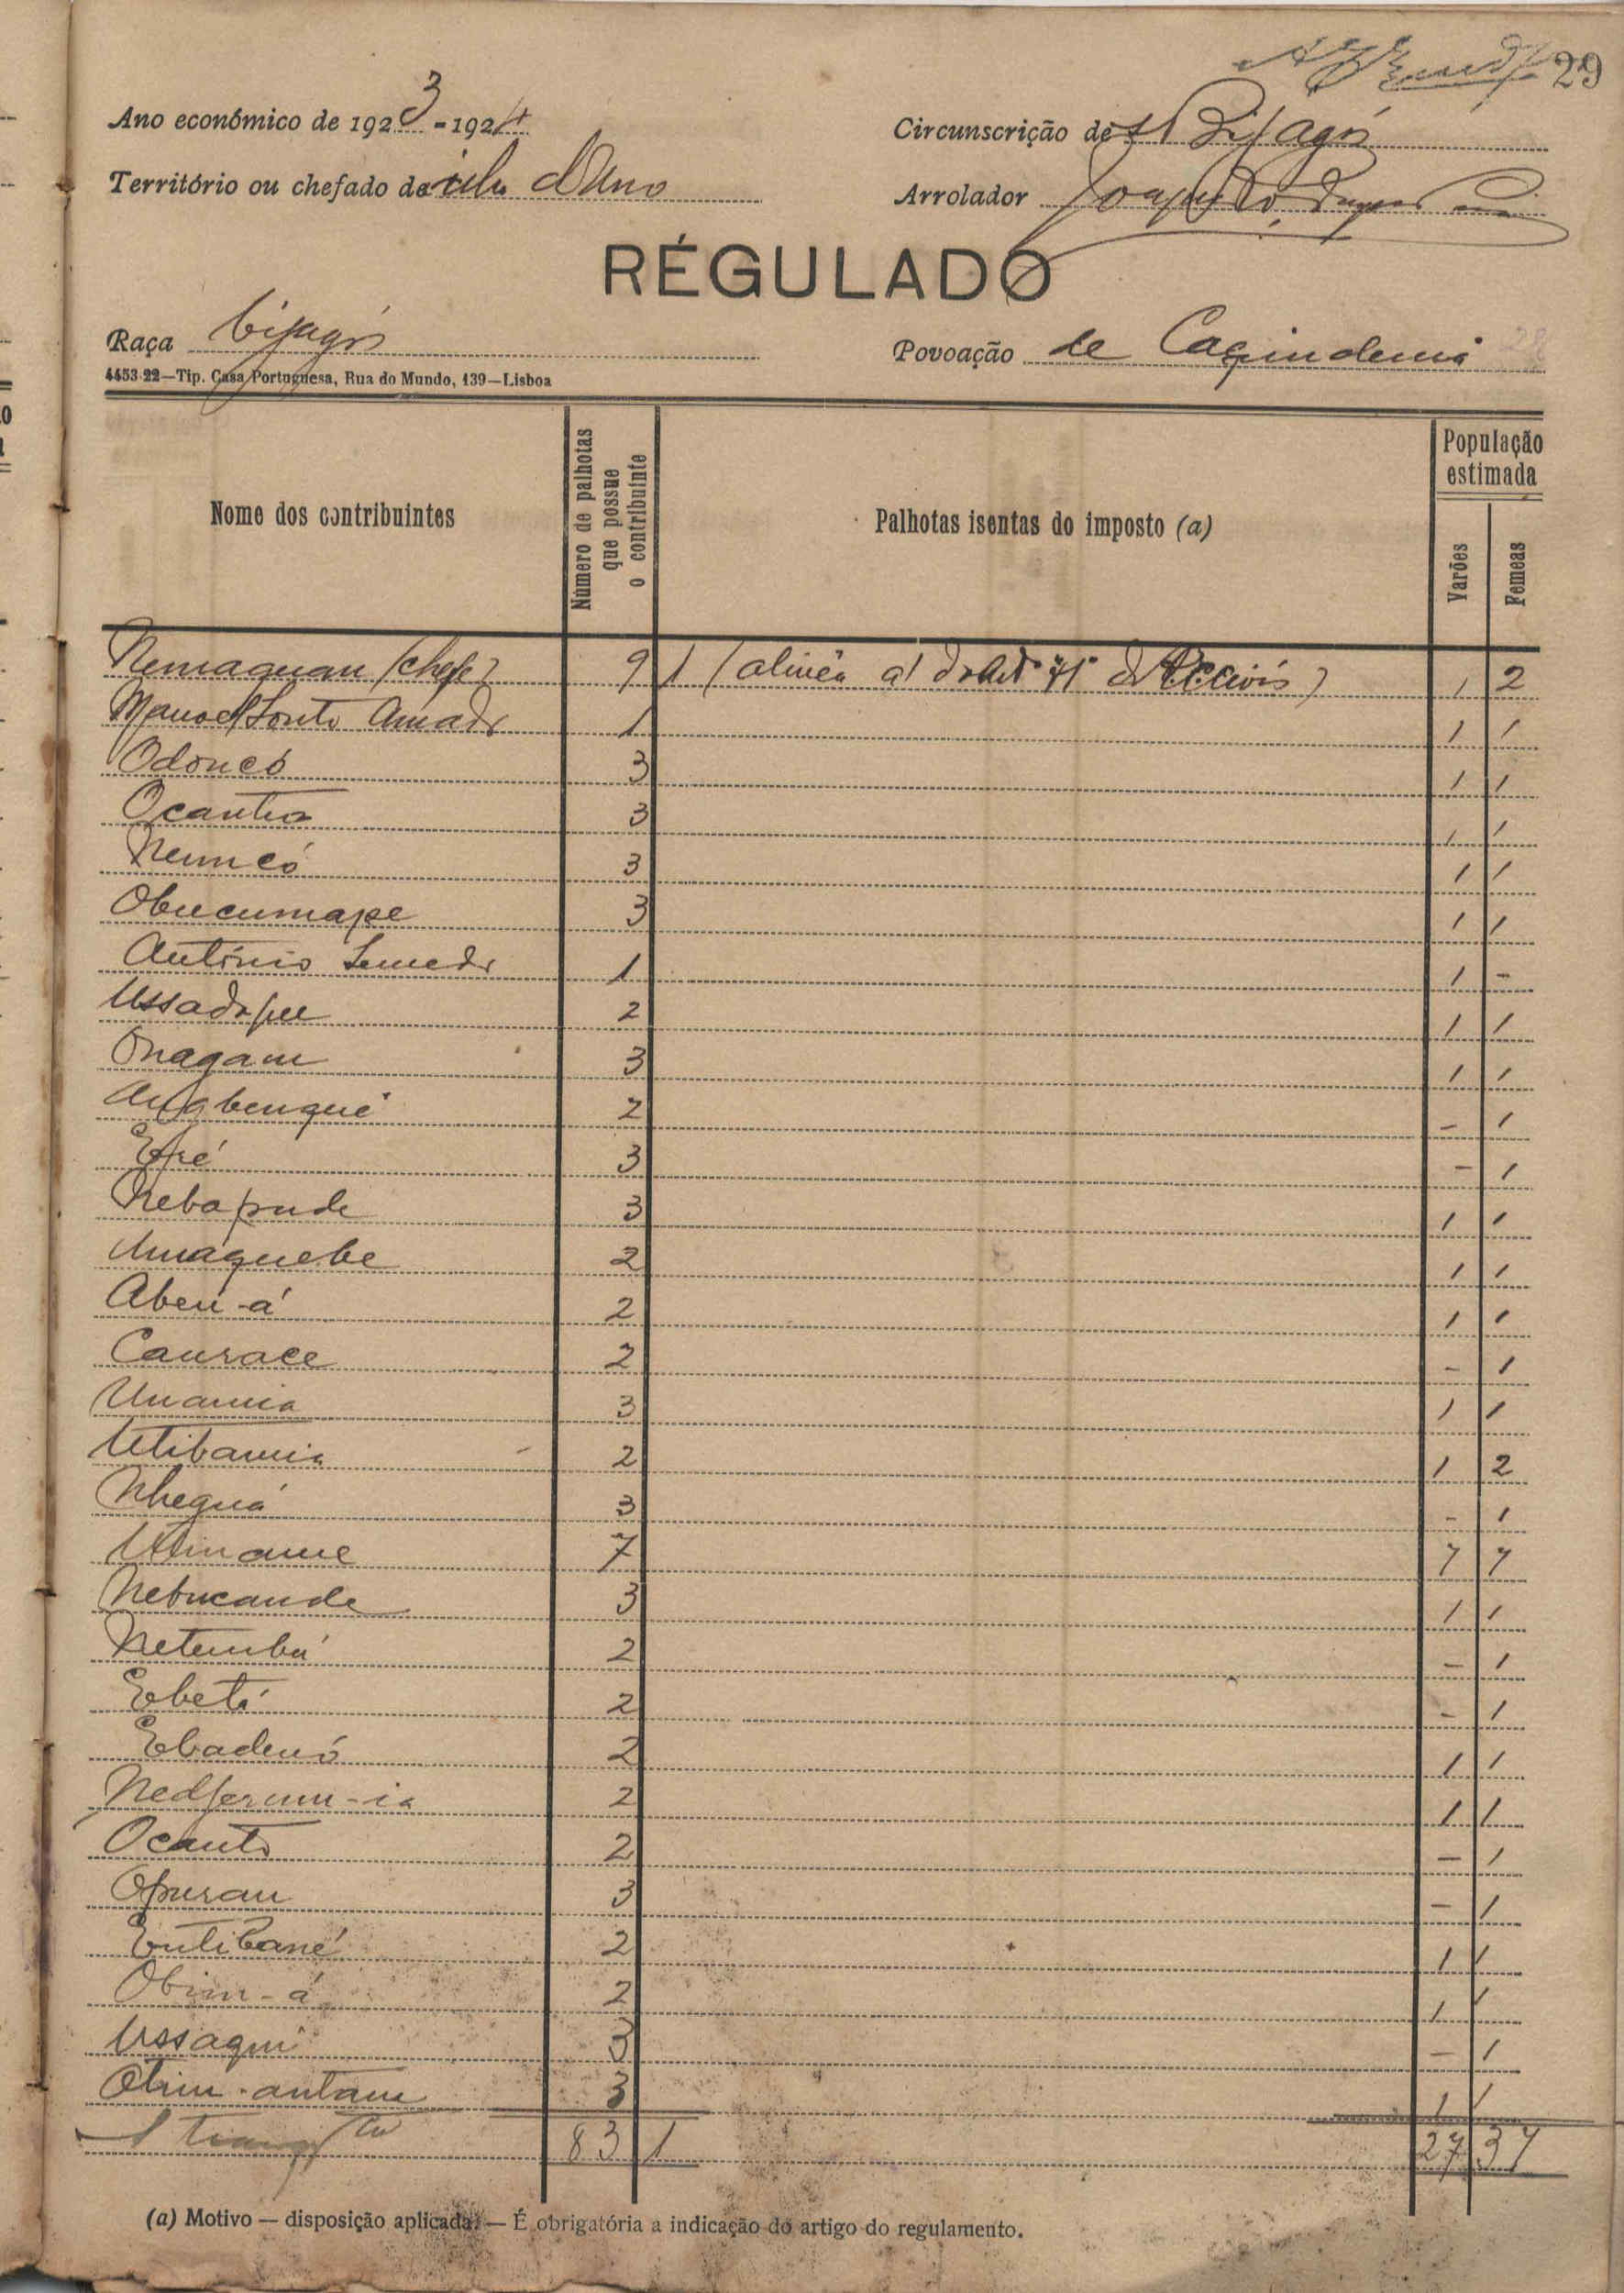 29
Ano económico de 1923-1924
Circunscrição de Bijagós
Território ou chefado da ilha d'Uno
Arrolador
RÉGULADO
Raça bijagós
Povoação de
4453-22—Tip. Casa Portuguesa, Rua do Mundo, 139—Lisboa
Nome dos contribuintes
Número de palhotas que possue o contribuinte
Palhotas isentas do imposto (a)
População estimada
Varões
Femeas
Nemaquan (chefe) 9 1 (alinêa a) do Artº 41º do 1 2
Manoel Souto Amado 1 1 1
Odoncó 3 1 1
Ocantió 3 1 1
Nemcó 3 1 1
Obucumape 3 1 1
António Semedo 1 1 -
Ussadopu 2 1 1
Onagam 3 1 1
Angbenqué 2 - 1
3 - 1
Nebapude 3 1 1
Umaquebe 2 1 1
Abeú-á 2 1 1
Caurace 2 - 1
Unamia 3 1 1
Utibamia 2 1 2
Nheguá 3 - 1
7 7 7
Nebucande 3 1 1
Netembú 2 - 1
Ebetó 2 - 1
Ebadenó 2 1 1
2 1 1
Ocanto 2 - 1
Opuran 3 - 1
Eutibané 2 1 1
Obim-á 2 1 1
Ussaqui 3 - 1
Otim-antam 3 1 1
83 1 27 37
(a) Motivo — disposição aplicada. — É obrigatória a indicação do artigo do regulamento.